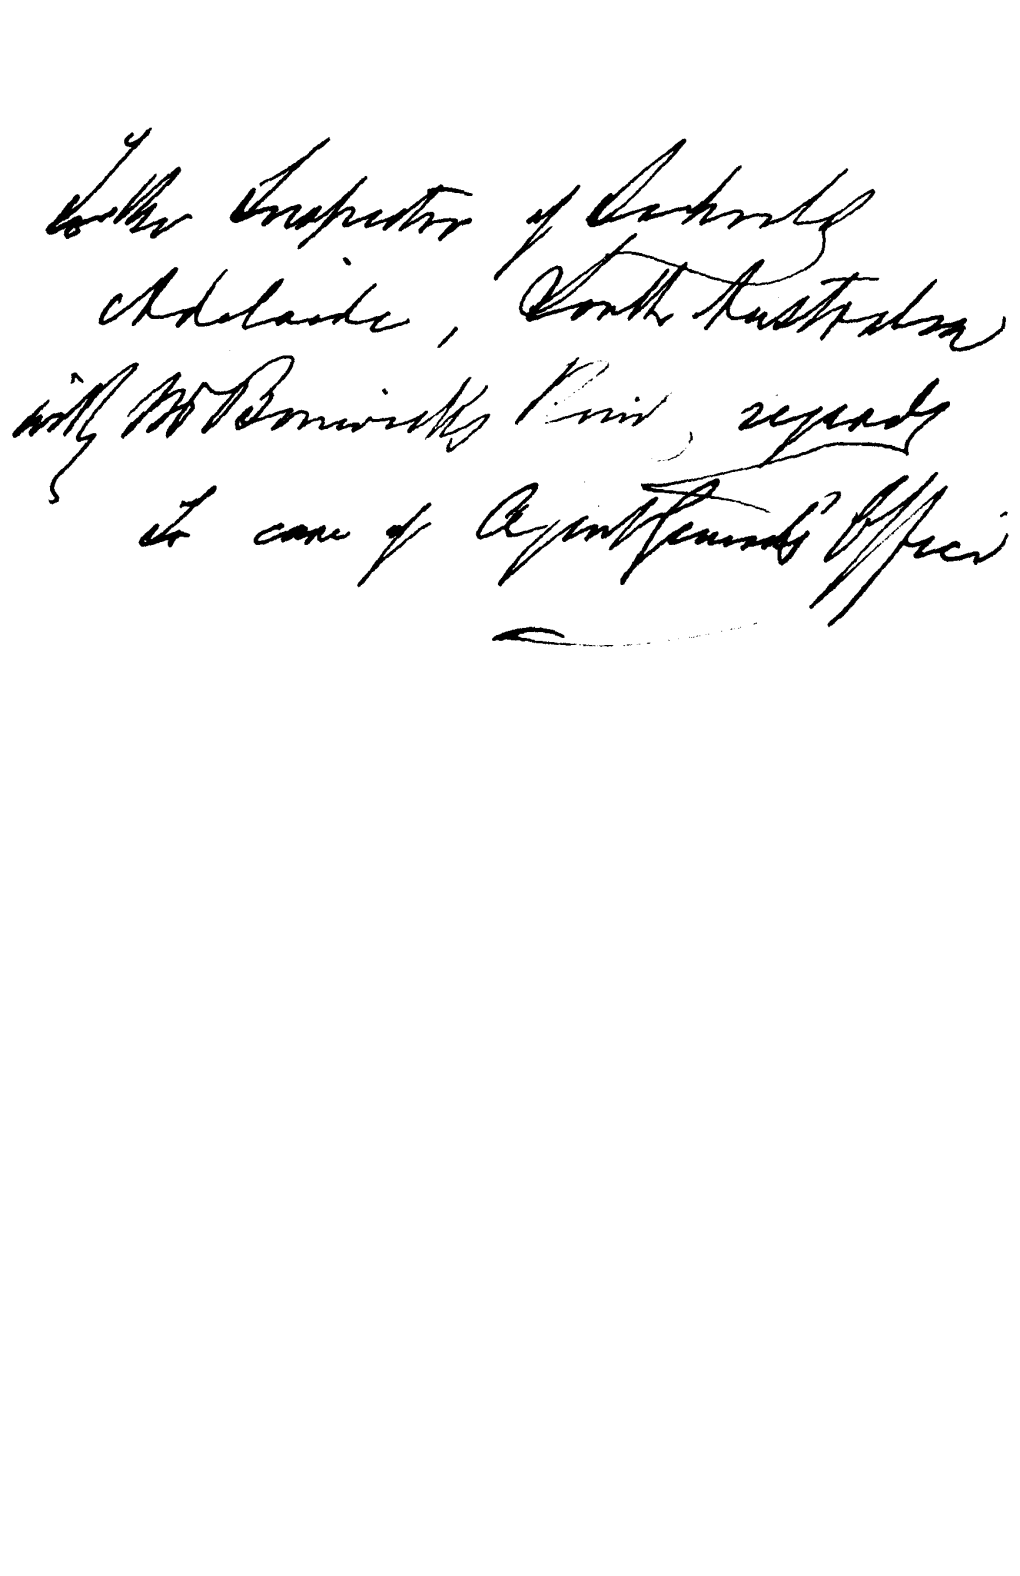 To the Inspector of Schools
Adelaide, South Australia
with Mr Bonwick's Kind regards
To care of Agent General's Office